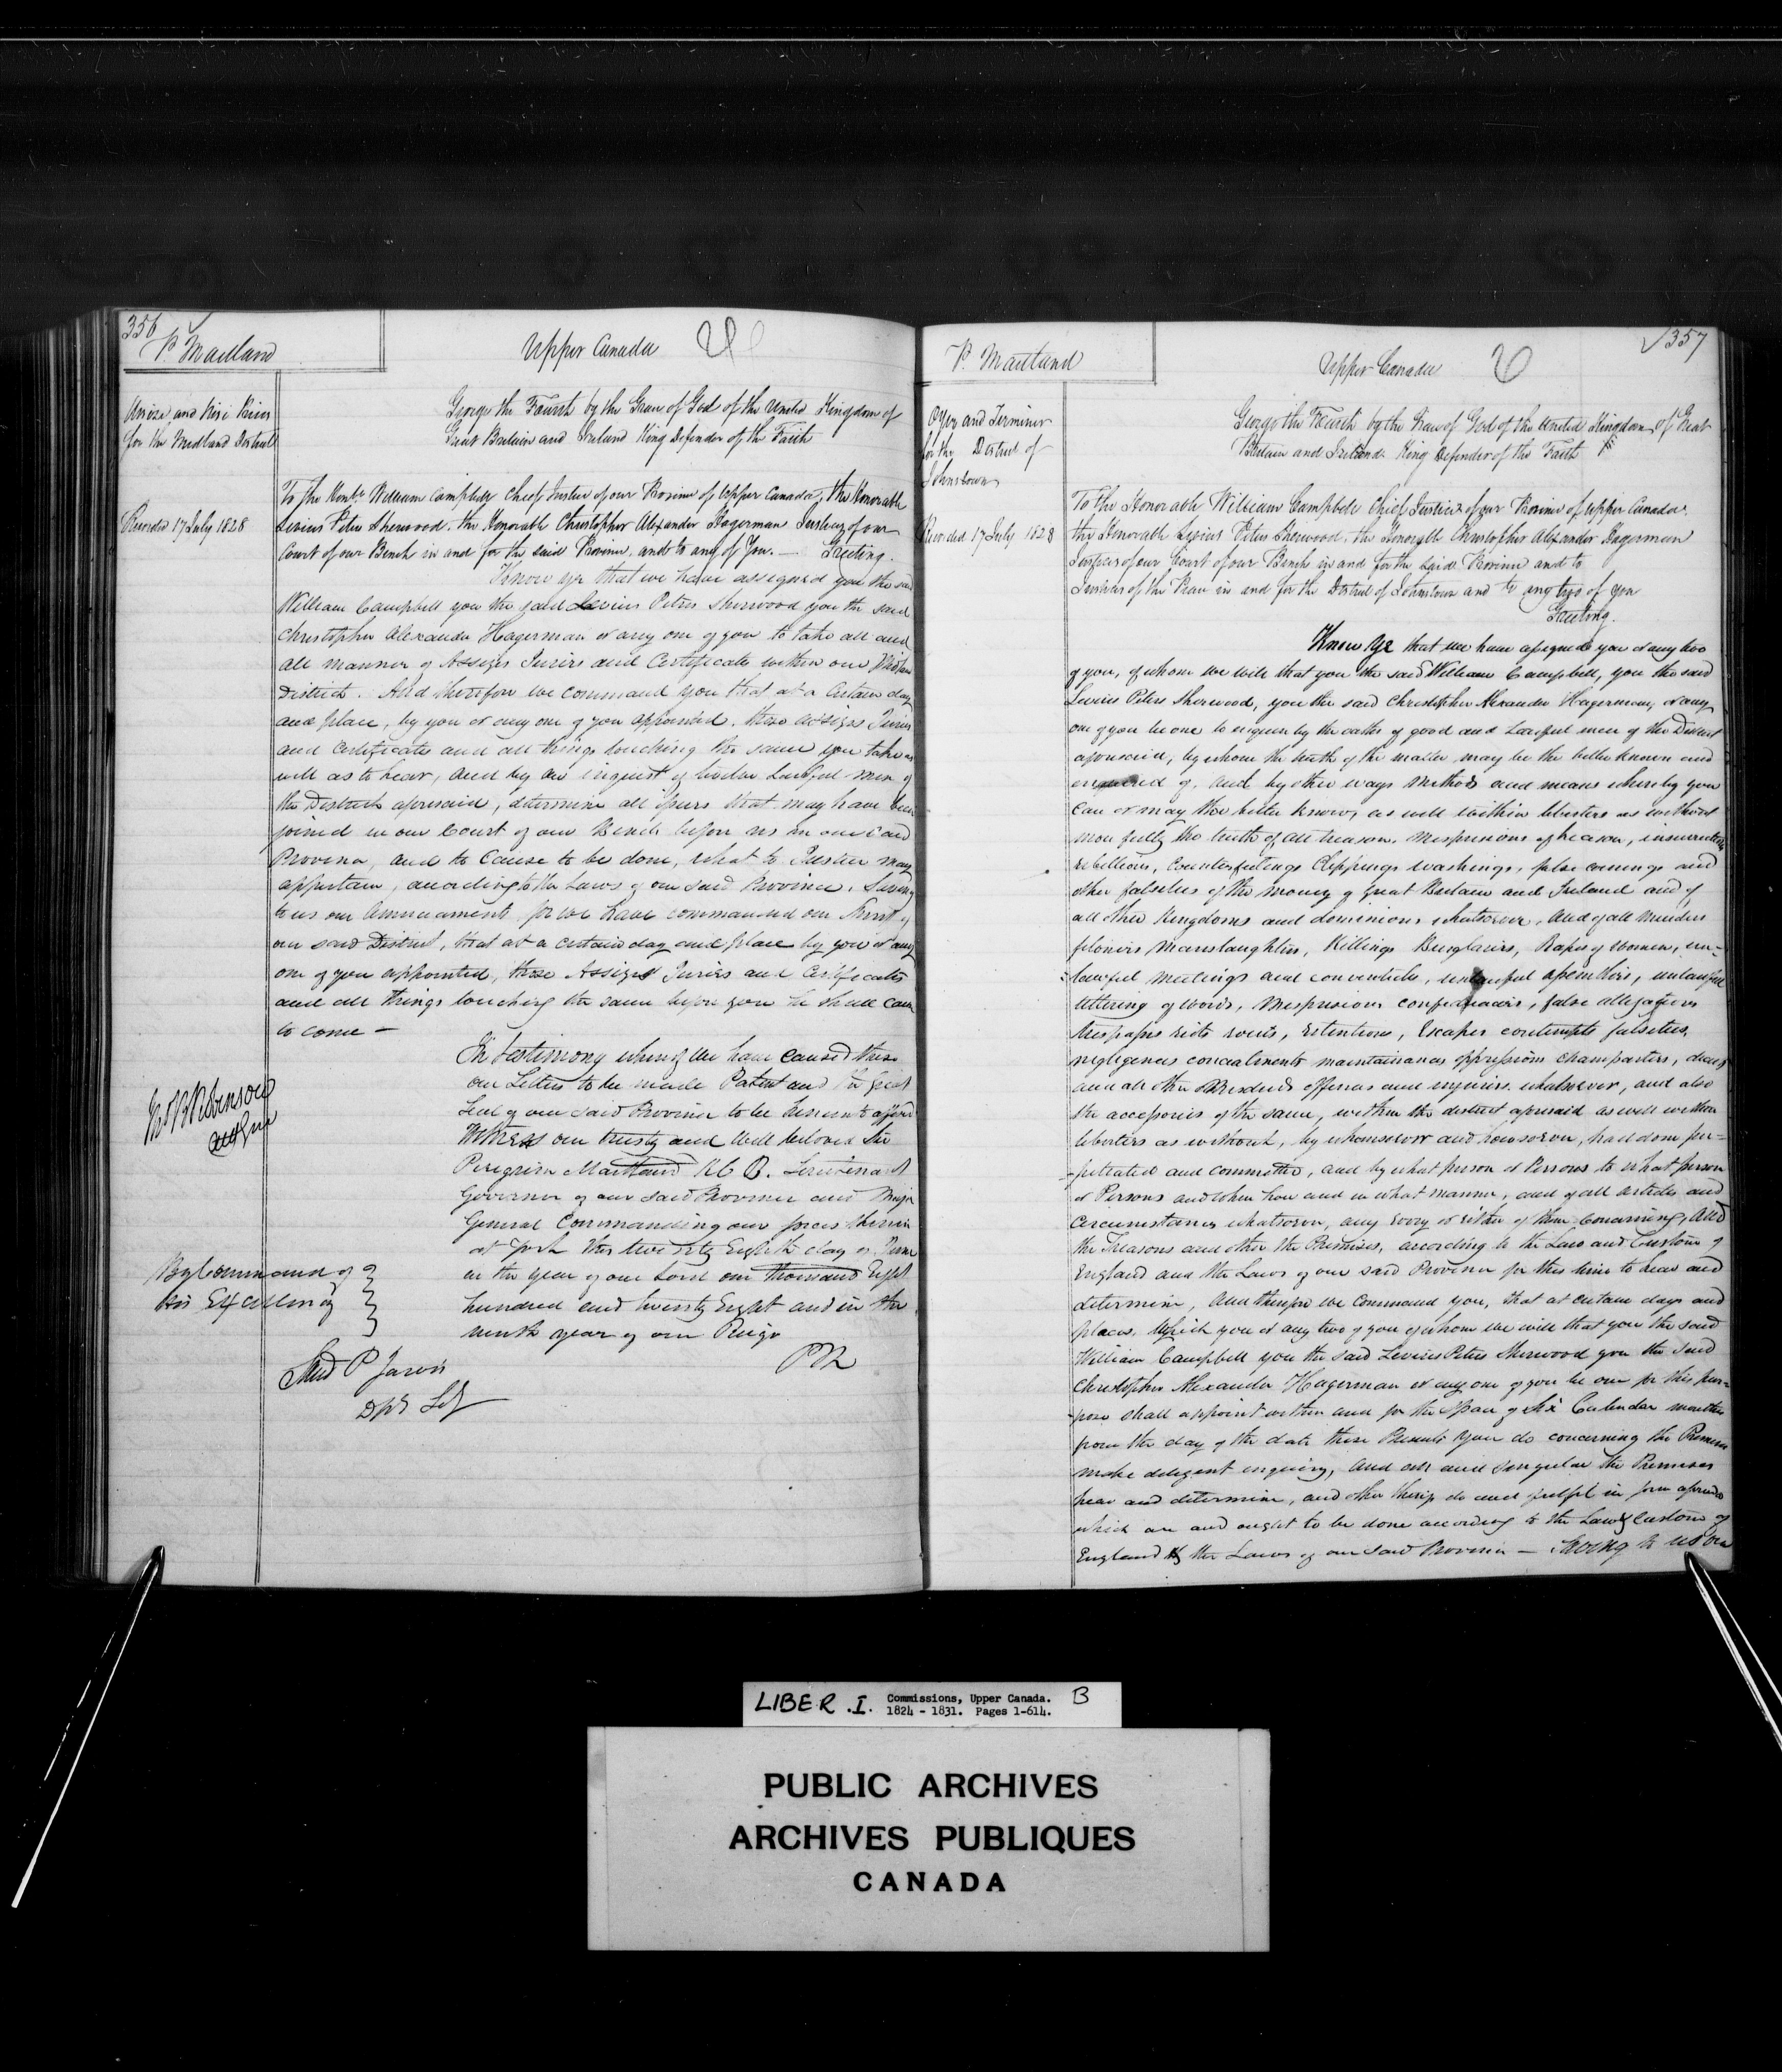 356
P. Maitland
Upper Canada
Assize and Nisi Prius
for the Midland District
George the Fourth by the Grace of God of the United Kingdom of
Great Britain and Ireland King Defender of the Faith
Recorded 17 July 1828
To The Honble William Campbell Chief Justice of our Province of Upper Canada, the Honorable
Levius Peters Sherwood. the Honorable Christopher Alexander Hagerman Justices of our
Court of our Bench in and for the said Province. and to any of You. — Greeting.
Know ye that we have assigned you the said
William Campbell you the said Levius Peters Sherwood you the said
Christopher Alexander Hagerman or any one of you to take all and
all manner of Assizes Juries and Certificates within our Midland
District. And therefore we command you that at a certain day
and place, by you or any one of you appointed, those assizes Juries
and Certificates and all things touching the same you take as
well as to hear, and by an inquest of twelve Lawful men of
the District aforesaid, determine all Issues that may have been
joined in our Court of our Bench before us in our said
Province, and to Cause to be done, what to Justice may
appertain, according to the Laws of our said Province. Saving
to us our Amerciaments, for we have commanded our Sheriff of
our said District, that at a certain day and place by you or any
one of you appointed, these Assizes Juries and Certificates
and all things touching the same before you he shall cause
to come —
In testimony whereof we have caused these
our Letters to be made Patent and the Great
Seal of our said Province to be hereunto affixed
Witness our trusty and Well beloved Sir
Peregrine Maitland K C B. Lieutenant
Governor of our said Province and Major
General Commanding our forces therein
at York this twenty Eighth day of June
in the year of our Lord one thousand Eight
hundred and twenty Eight and in the
ninth year of our Reign
Jno B Robinson
Atty Genl
By Command of
His Excellency
Saml P Jarvis
Dpy Sey
P M
357
P. Maitland
Upper Canada
Oyer and Terminer
for the District of
Johnstown
George the Fourth by the Grace of God of the United Kingdom of Great
Britain and Ireland King Defender of the Faith
Recorded 17 July 1828
To the Honorable William Campbell Chief Justice of our Province of Upper Canada.
the Honorable Levius Peters Sherwood, the Honorable Christopher Alexander Hagerman
Justices of our Court of our Bench in and for the said Province and to
Justices of the Peace in and for the District of Johnstown and to any two of you
Greeting.
Know Ye that we have assigned you or any two
of you, of whom we will that you the said William Campbell, you the said
Levius Peters Sherwood, you the said Christopher Alexander Hagerman, or any
one of you be one to enquire by the oaths of good and Lawful men of the District
aforesaid, by whom the truth of the matter may be the better known and
enquired of, and by other ways Methods and means whereby you
can or may the better know, as well within liberties as without
more fully the truth of all treason, Misprisions of treason, insurrections
rebellions, Counterfeitings Clippings washings, false coinings and
other falsities of the money of Great Britain and Ireland and of
all other Kingdoms and dominions whatsoever, and of all Murders
felonies Manslaughters, Killings Burglaries, Rapes of Women, un-
lawful meetings and conventicles, unlawful assemblies, unlawful
uttering of words, Misprisions confederacies, false allegations
trespasses riots routs, retentions, Escapes contempts falsities,
negligences concealments maintainances oppressions champarties, deceits
and all other Misdeeds offences and injuries whatsoever, and also
the accessories of the same, within the district aforesaid as well within
liberties as without, by whomsoever and howsoever, had done per-
-petrated and committed, and by what person or Persons to what person
or Persons and when how and in what manner, and of all articles and
Circumstances whatsoever, any Every or Either of them Concerning, And
the Treasons and other the Premises, according to the Law and Custom of
England and the Laws of our said Province for this time to hear and
determine, And therefore we Command you, that at certain days and
places, Which you or any two of you of whom we will that you the said
William Campbell you the said Levius Peters Sherwood you the said
Christopher Alexander Hagerman or any one of you be one for this pur-
-pose shall appoint within and for the space of six Calendar months
from the day of the date these Presents You do concerning the Premises
make diligent enquiry, and all and singular the Premises
hear and determine, and other things do and fulfil in form aforesaid
which are and ought to be done according to the Law & Custom of
England & the Laws of our said Province — Saving to us our
LIBER .I. Commissions, Upper Canada. B
1824 - 1831. Pages 1-614.
PUBLIC ARCHIVES
ARCHIVES PUBLIQUES
CANADA